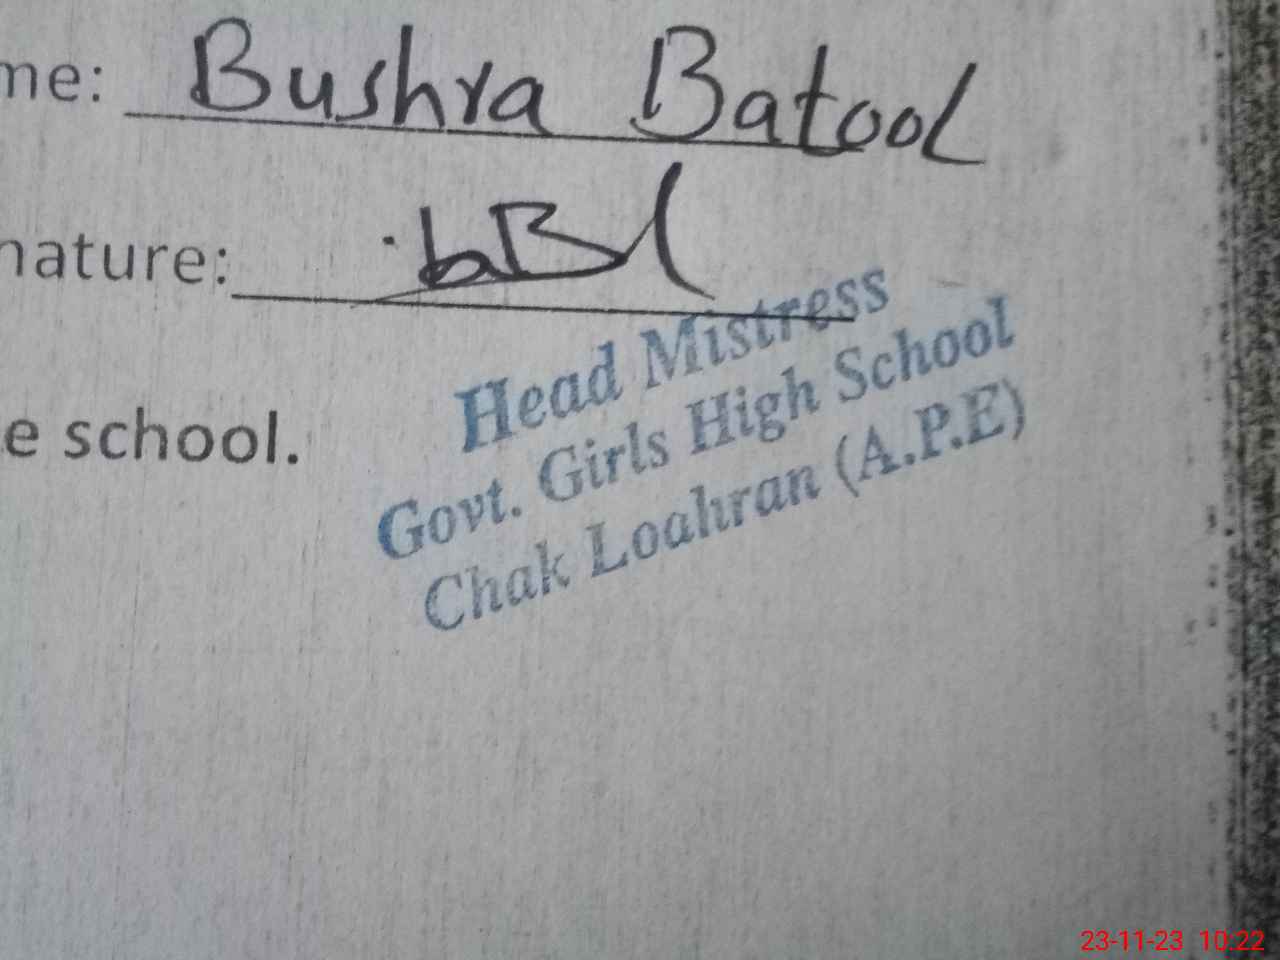 me: Bushra Batool
nature:
Head Mistress
e school.
Govt. Girls High School
Chak Loahran (A.P.E)
23-11-23 10:22